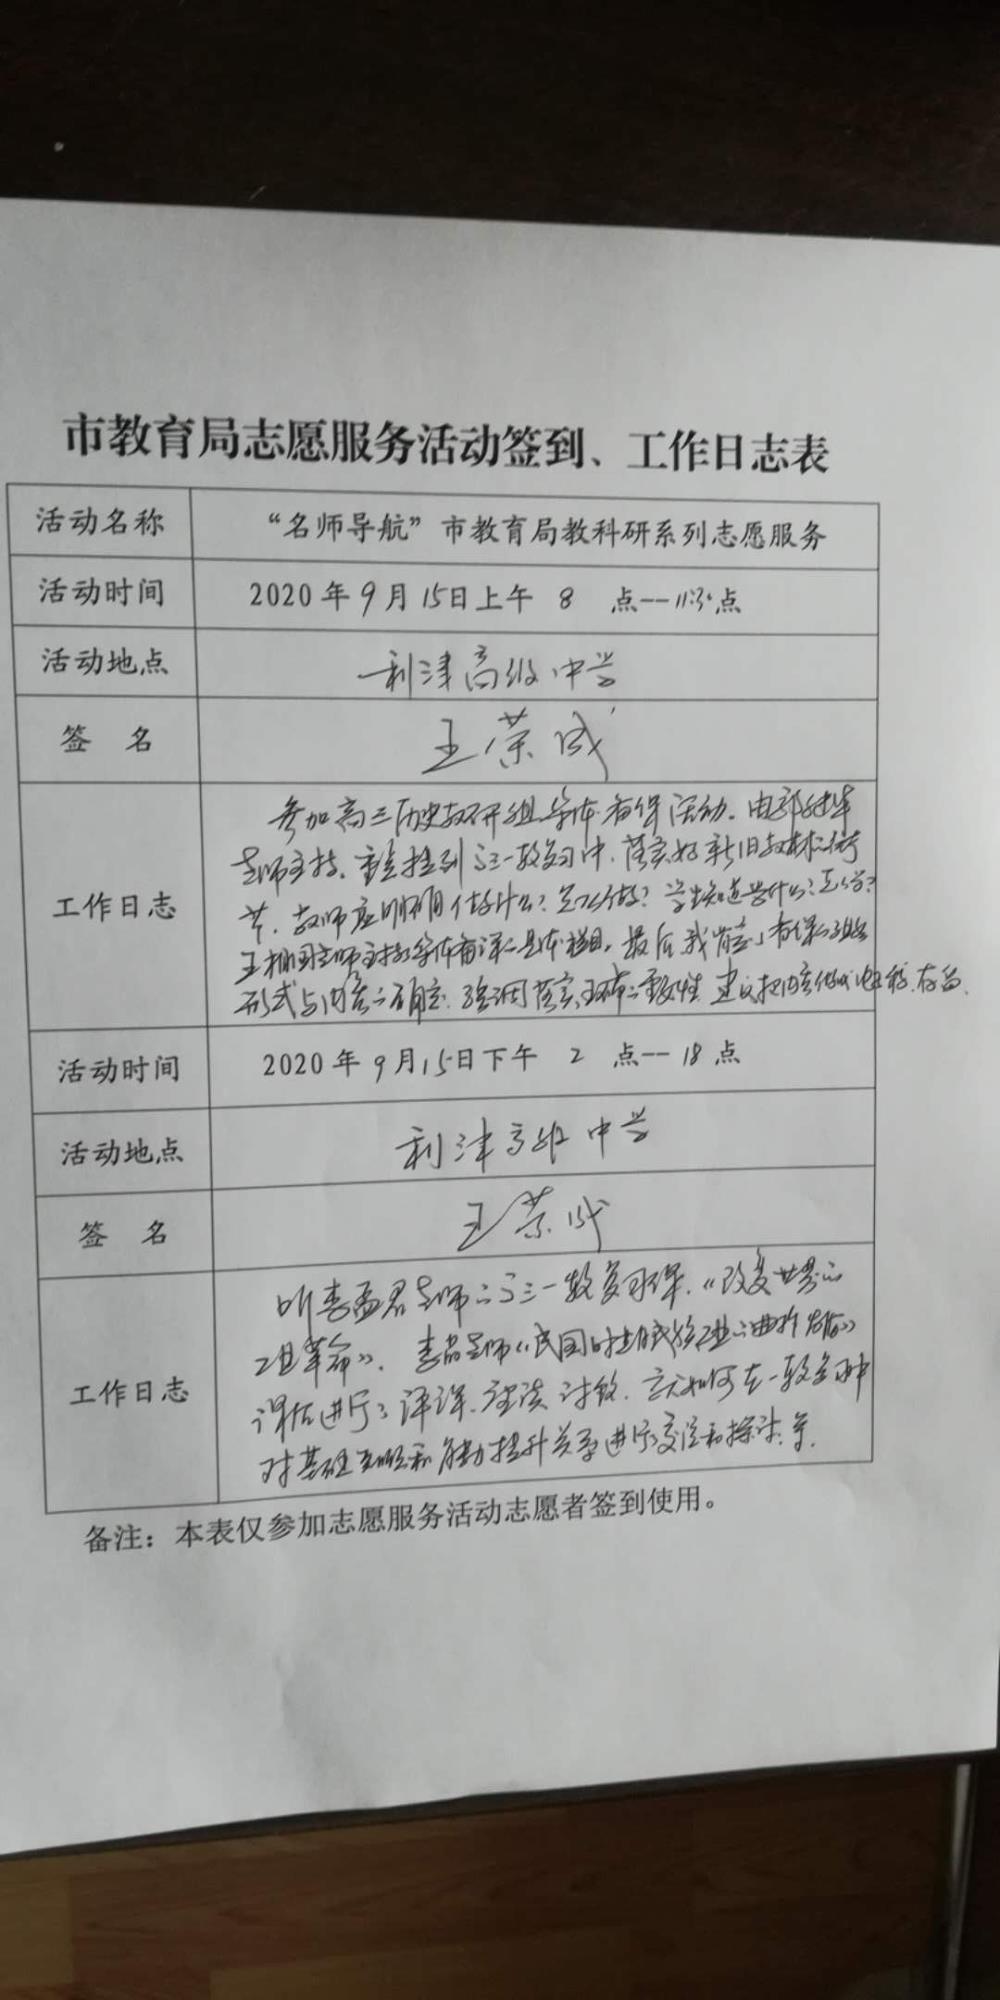 市教育局志愿服务活动签到、工作日志表
活动名称 “名师导航”市教育局教科研系列志愿服务
活动时间 2020年9月15日上午 8 点--11:30点
活动地点 利津高级中学
签 名 王荣成
工作日志
参加高三历史教研组集体备课活动。由
老师主持。重点提到高三一轮复习中，落实好新旧教材衔
节，教师应明确做什么？怎么做？学生知道学什么？怎么学？
老师主持 最后我肯定了备课组
形式与内容的确定，强调落实 重要性 建议把内容做成 存留.
活动时间 2020年9月15日下午 2 点--18点
活动地点 利津高级中学
签 名 王荣成
工作日志
听李孟君老师的高三一轮复习课，《改变世界的
工业革命》、李 老师《民国时期民族工业的曲折发展》
课后进行了评课、座谈讨论，
对基础 和能力提升关系进行了交流和探讨.等.
备注：本表仅参加志愿服务活动志愿者签到使用。